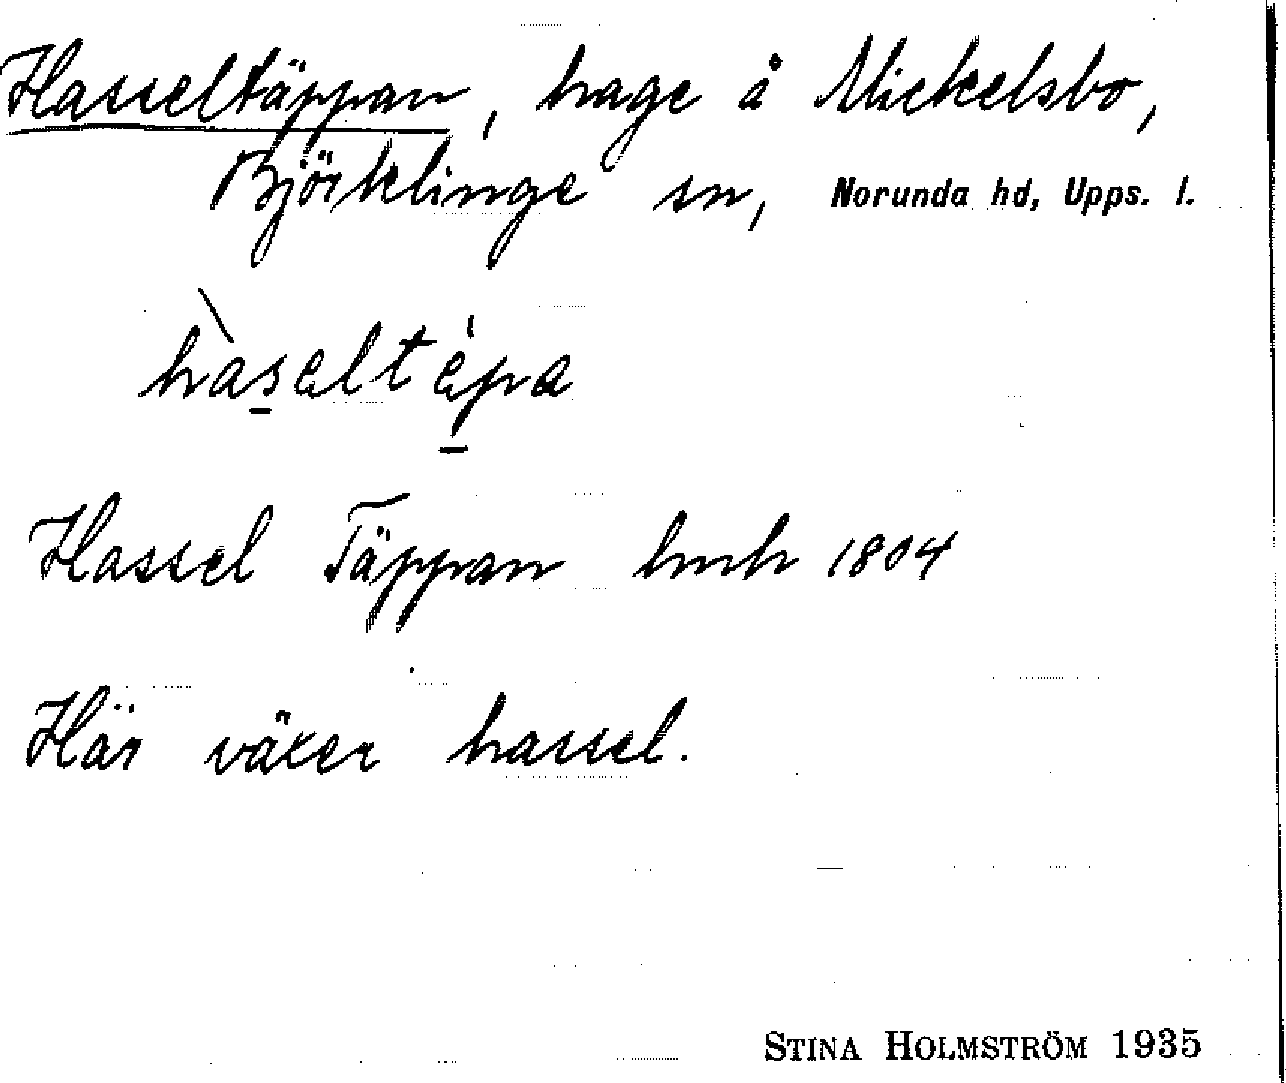 Hasseltäppan, hage å Mickelsbo,
Björklinge sn, Norunda hd, Upps. l.
hàseltèpa
Hassel Täppan hmh 1804
Här växer hassel.
STINA HOLMSTRÖM 1935